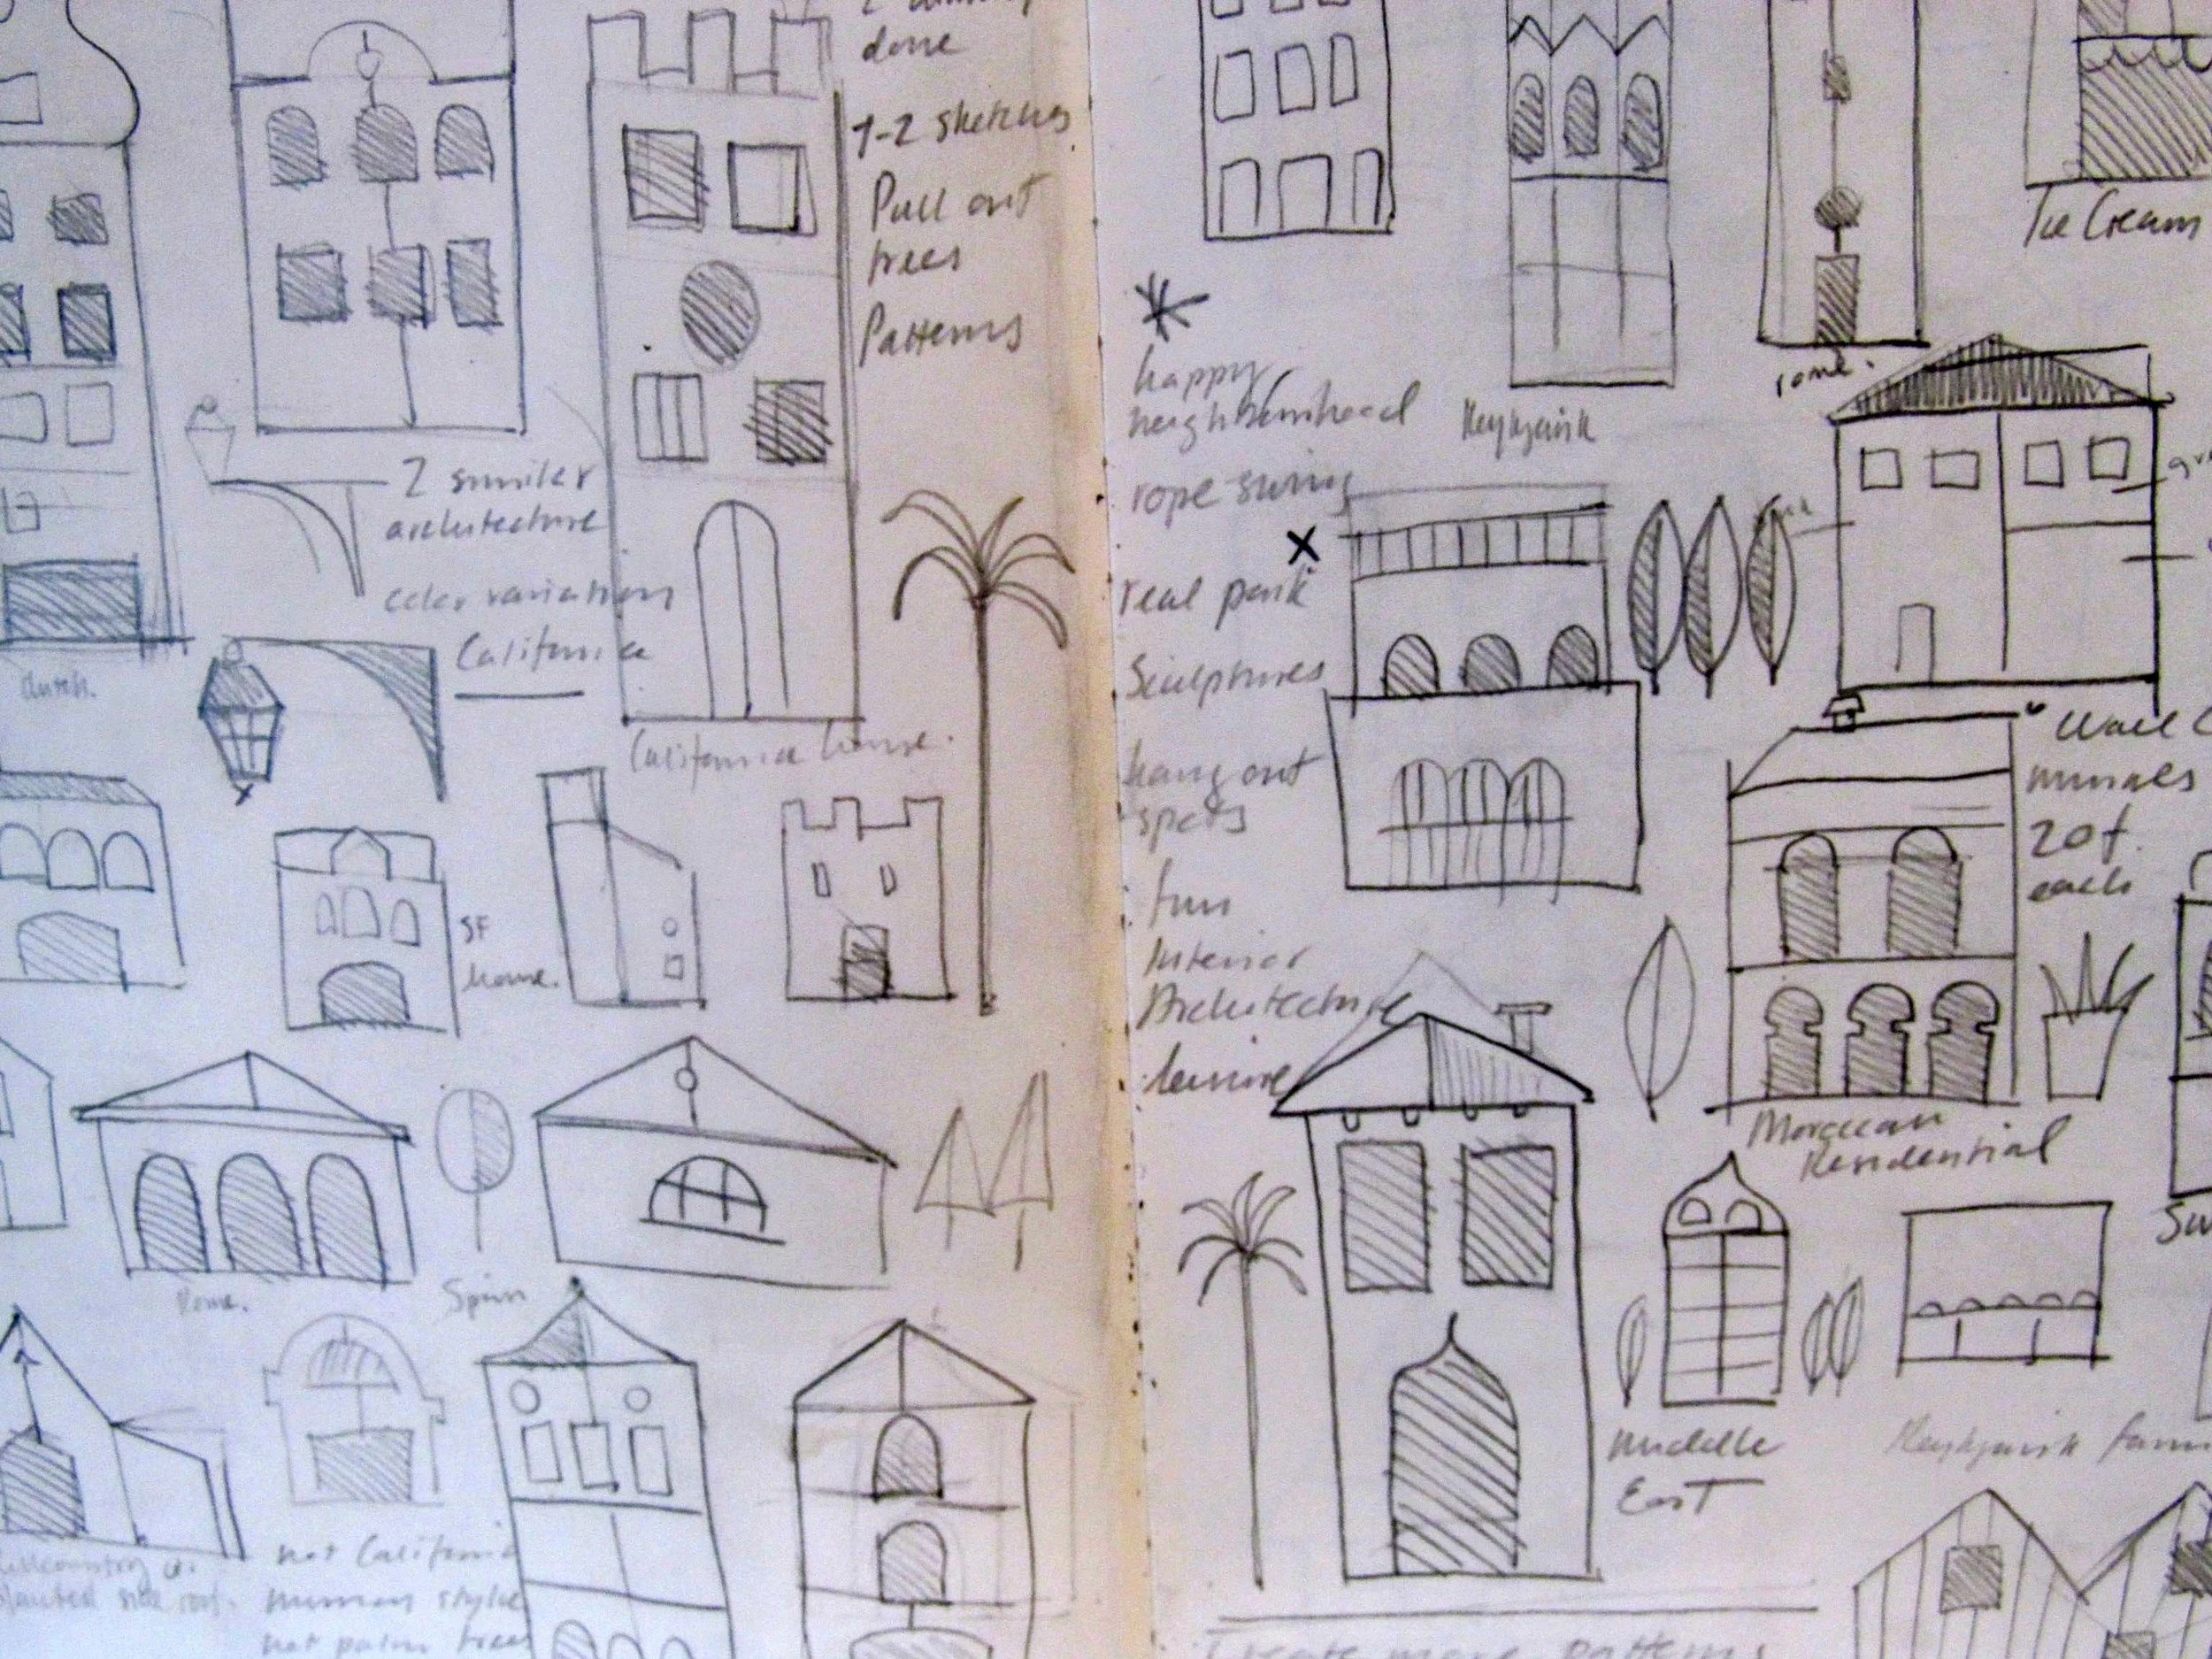 done
1-2 sketches
Pull out
trees
Patterns
2 similar
architecture
color variations
California
dutch.
California house.
SF
home.
Rome.
Spain
not California
not palm trees
Ice Cream
rome.
Reykjavik
happy
neighbourhood
rope swing
real park
Sculptures
hang out
spots
fun
Interior
Architecture
leisure
murals
20 f.
each
Moroccan
Residential
Middle
East
Reykjavik
Create more patterns